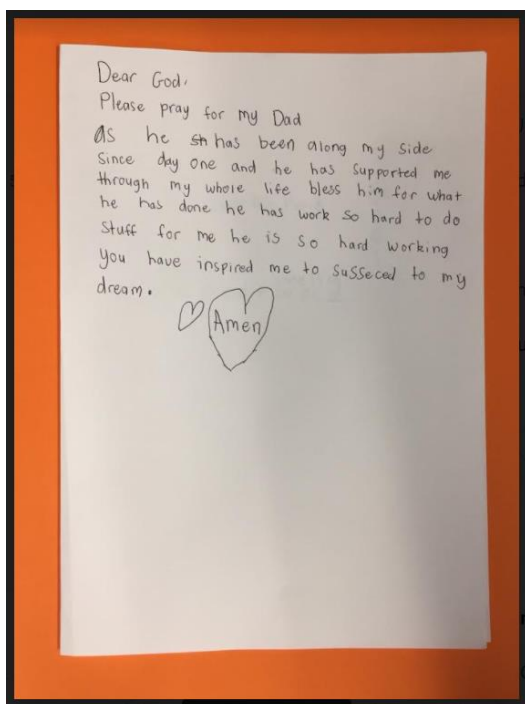 Dear God,
Please pray for my Dad
As he sh has been along my side
Since day one and he has supported me
through my whole life bless him for what
he has done he has work so hard to do
stuff for me he is so hard working
You have inspired me to susseced to my
dream.
Amen